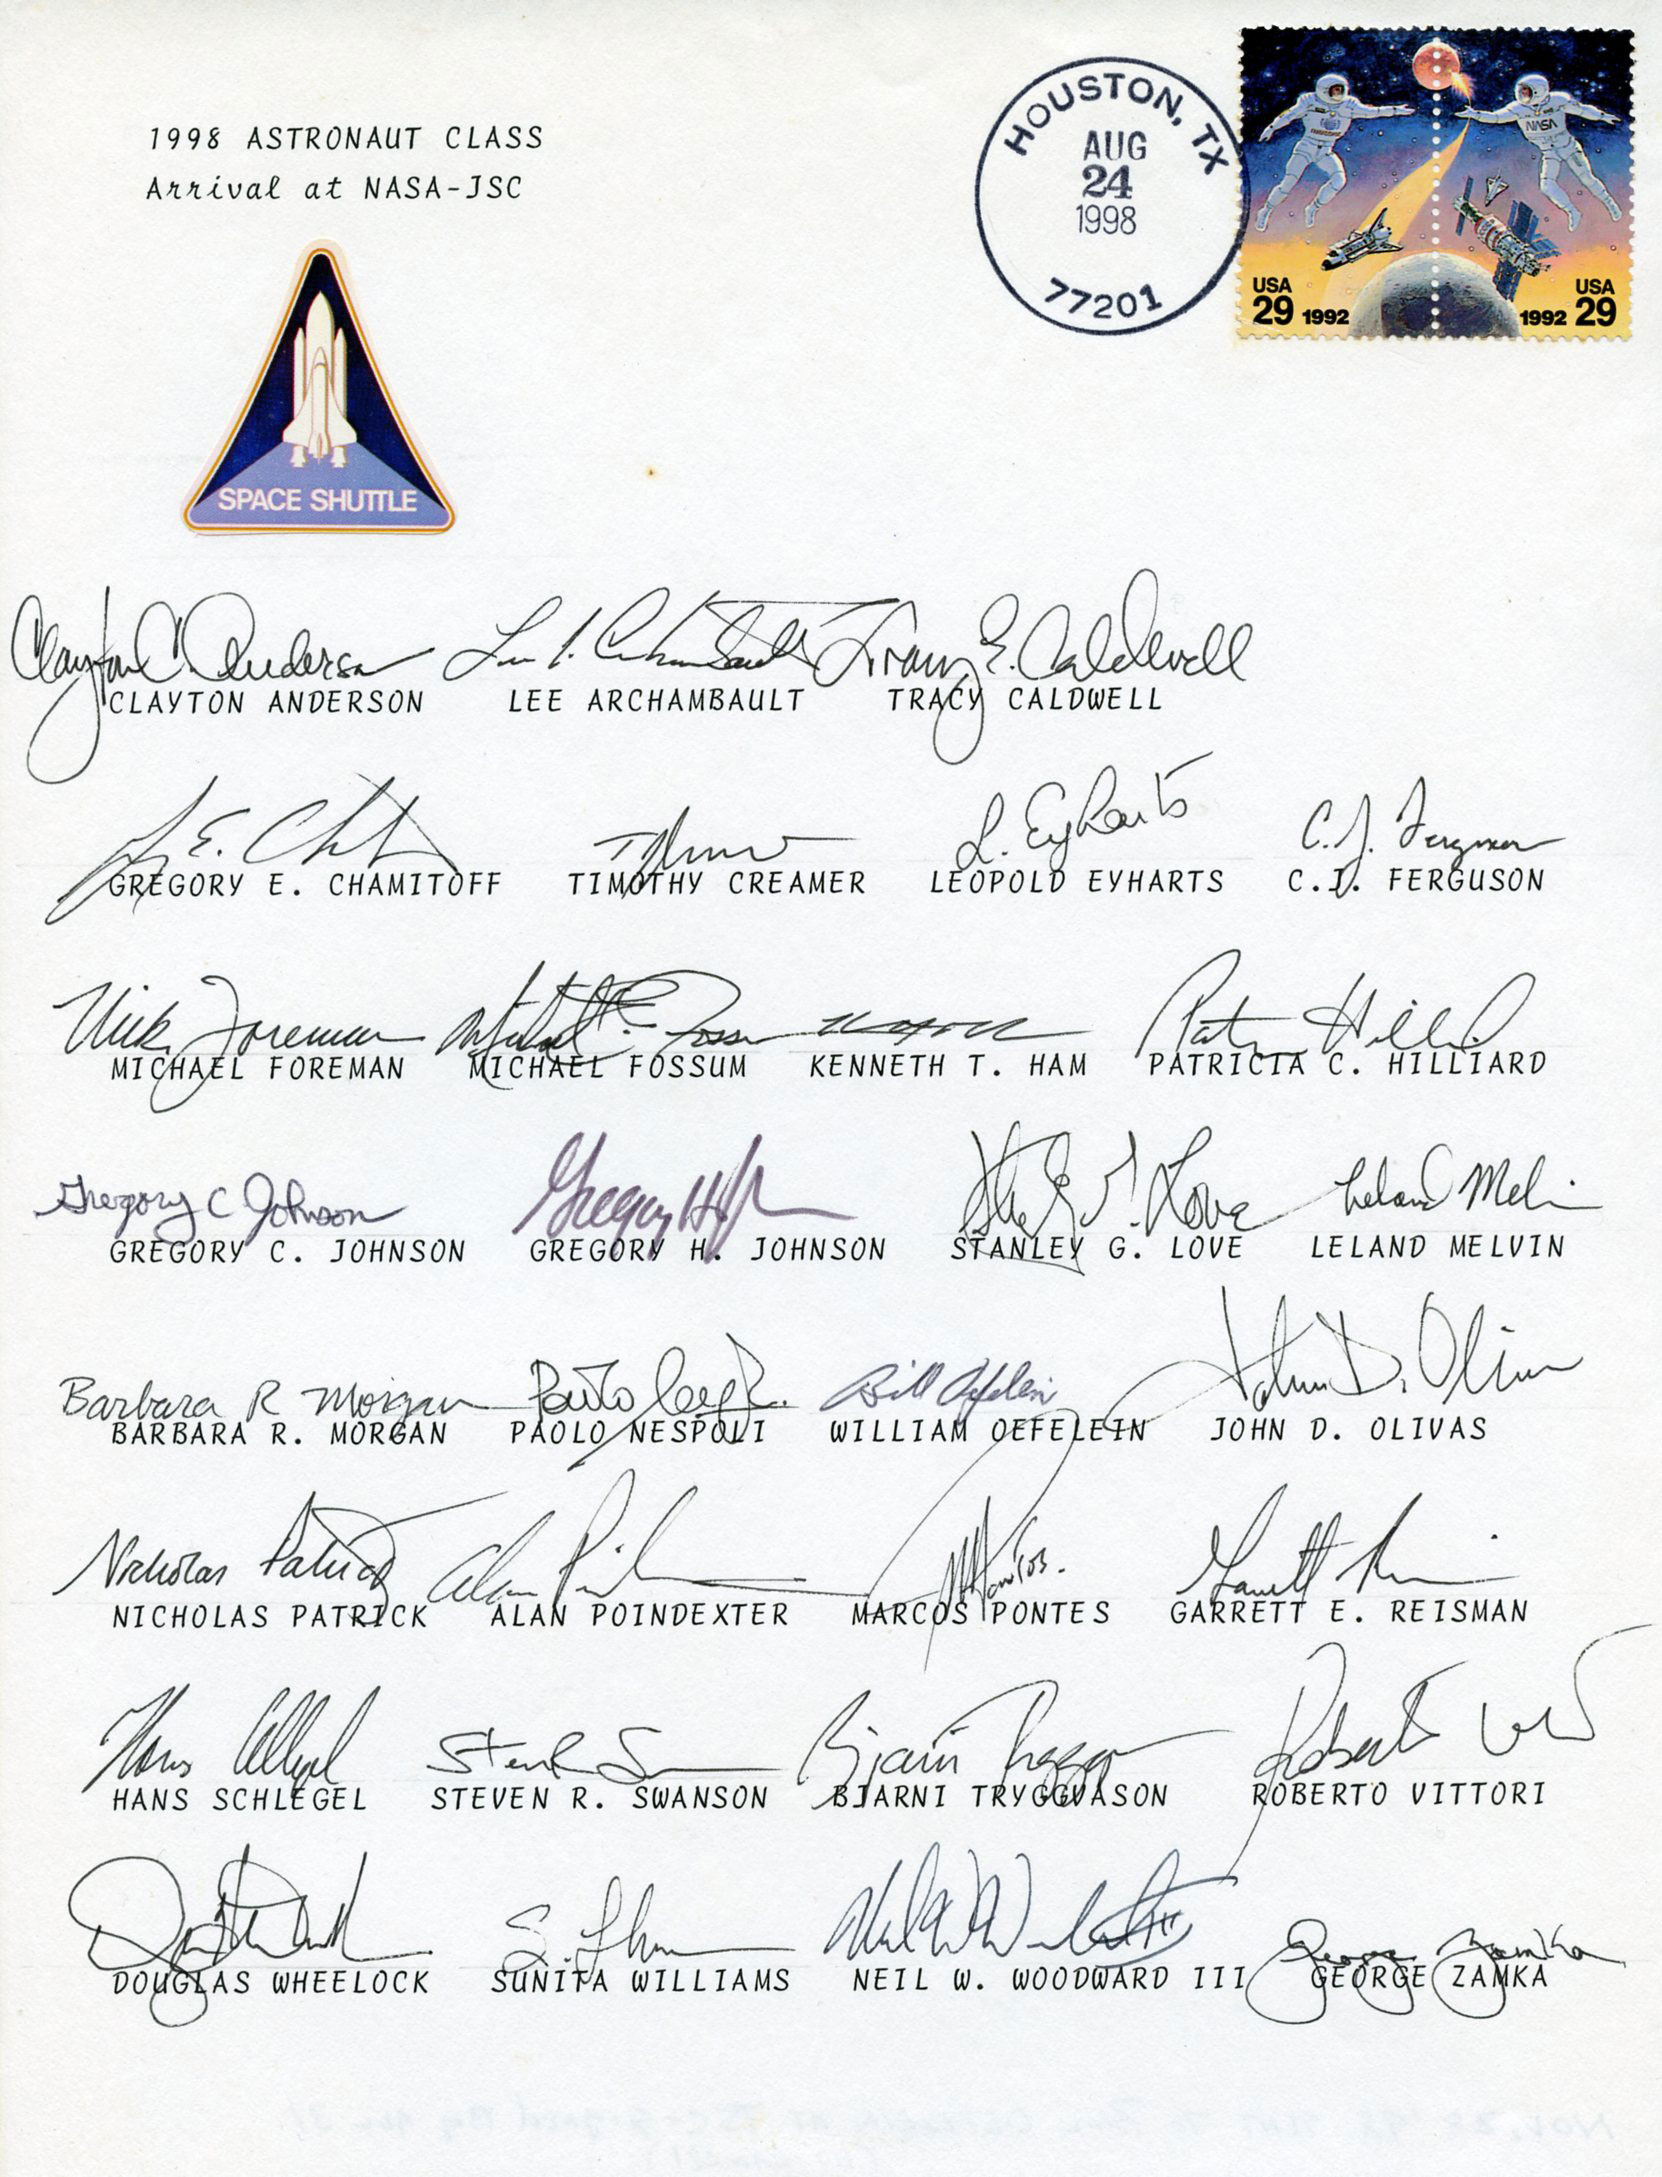 1998 ASTRONAUT CLASS
Arrival at NASA-JSC
HOUSTON, TX
AUG
24
1998
77201
NASA
USA
29 1992
USA
1992 29
SPACE SHUTTLE
Clayton C. Anderson Lee J. Archambault Tracy E. Caldwell
CLAYTON ANDERSON LEE ARCHAMBAULT TRACY CALDWELL
L. Eyharts C. J. Ferguson
GREGORY E. CHAMITOFF TIMOTHY CREAMER LEOPOLD EYHARTS C.J. FERGUSON
Mike Foreman Michael E. Fossum Pat Hilliard
MICHAEL FOREMAN MICHAEL FOSSUM KENNETH T. HAM PATRICIA C. HILLIARD
Gregory C Johnson Gregory H. J Stanley G. Love Leland Melvin
GREGORY C. JOHNSON GREGORY H. JOHNSON STANLEY G. LOVE LELAND MELVIN
Barbara R Morgan Paolo Bill Oefelein John D. Olivas
BARBARA R. MORGAN PAOLO NESPOLI WILLIAM OEFELEIN JOHN D. OLIVAS
Nicholas Patrick Alan Garrett
NICHOLAS PATRICK ALAN POINDEXTER MARCOS PONTES GARRETT E. REISMAN
Hans Schlegel Bjarni Tryggvason Roberto
HANS SCHLEGEL STEVEN R. SWANSON BJARNI TRYGGVASON ROBERTO VITTORI
George Zamka
DOUGLAS WHEELOCK SUNITA WILLIAMS NEIL W. WOODWARD III GEORGE ZAMKA